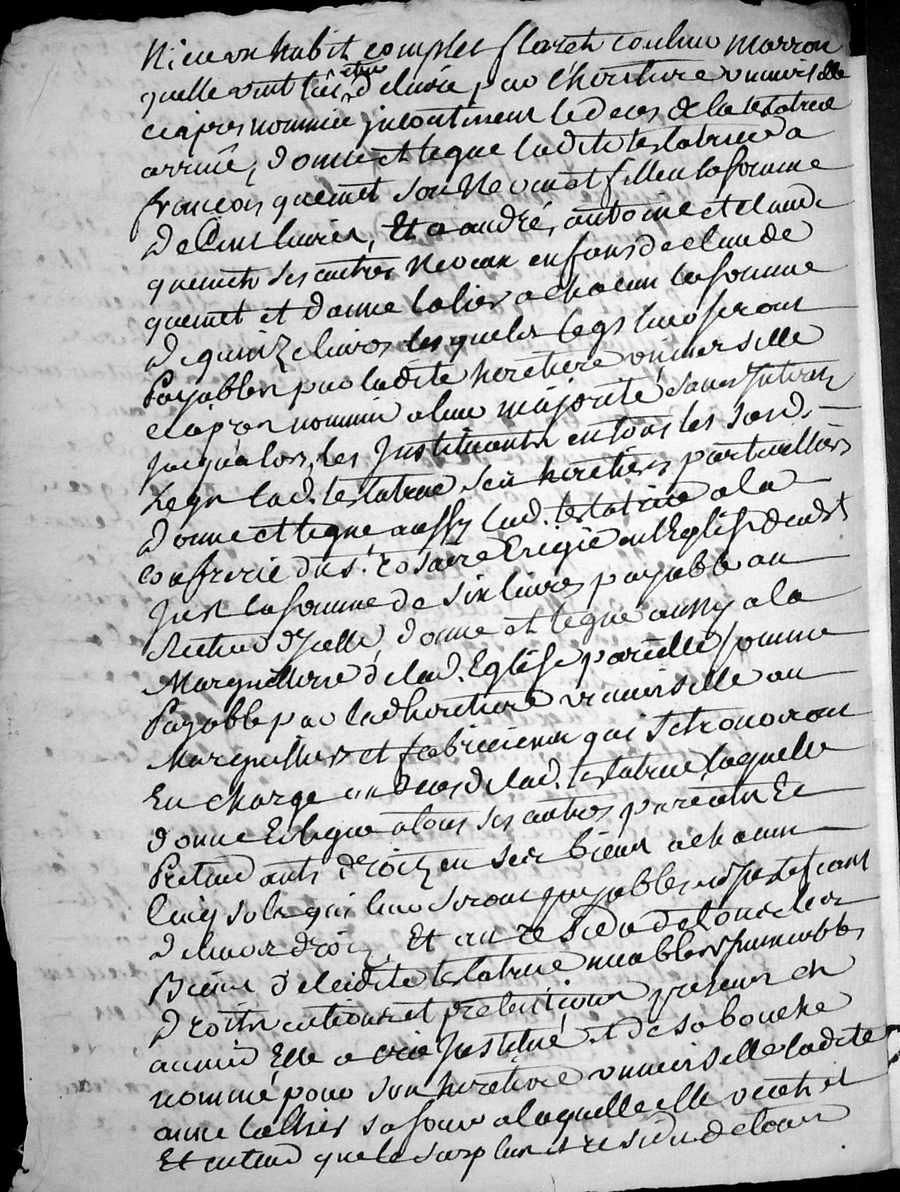 Niece un habit complet sareth couleur marron
quelle veut lui etre delivré par l'heritiere universelle
ciapres nommée incontinent le deces de la testatrice
arrivé, donne et legue ladite testatrice a
françois quemet son Neveu et filleul la somme
De Cent livres, Et a andré, antoine et claude
quemet ses autres Neveux enfans de claude
quemet et d'anne lalier a chacun la somme
De quinze livres lesquels legs leur seront
Payables par ladite heritiere universelle
ciapres nommée a leur majorité sans Interets
Jusqualors, les Instituants en tous les sus d.
Legs lad. testatrice ses heritiers particulliers
Donne et legue aussy lad. testatrice a la
confrerie du st. rosaire Erigée en l'Eglise dud. st
Just la somme de six livres payable au
Recteur d'Icelle, donne et legue aussy a la
Marguillerie de lad. Eglise pareille somme
Payable par lad heritiere universelle au
Marguilliers et fabriciens qui se trouveront
En charge au deces de lad. testatrice laquelle
donne Et legue a tous ses autres parents Et
Pretendants droits en ses biens a chacun
Cinq sols qui leur seront payables en justifiant
de leur droit, Et au residu de tous ses
Biens de ladite testatrice meubles Immeubles
Droits actions et pretentions presents et
avenir Elle a Institué et de sa bouche
nommé pour son heritiere universelle ladite
anne lallier sa soeur a laquelle elle veut et
Et entend que le surplus et residu de tous